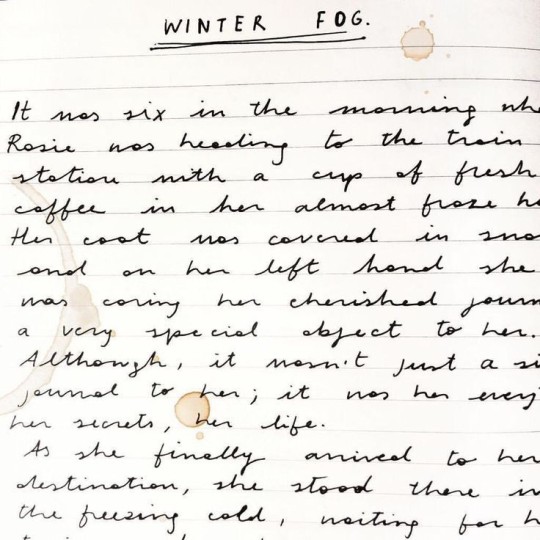 WINTER FOG.
It was six in the morning whe
Rosie was heading to the train
station with a cup of fresh
coffee in her almost froze ha
Her coat was covered in sno
and on her left hand she
was caring her cherished journ
a very special object to her.
Although, it wasn't just a si
journal to her; it was her every
her secrets, her life.
As she finally arrived to her
destination, she stood there in
the freezing cold, waiting for h